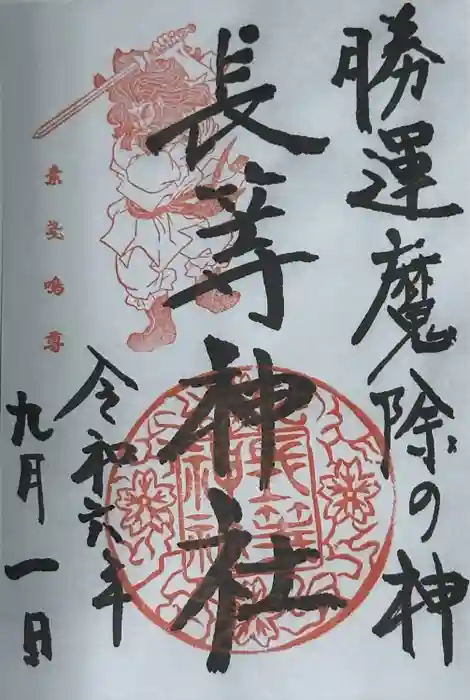 勝運魔除の神
長等神社
素盞嗚尊
令和六年
九月一日
長等神社